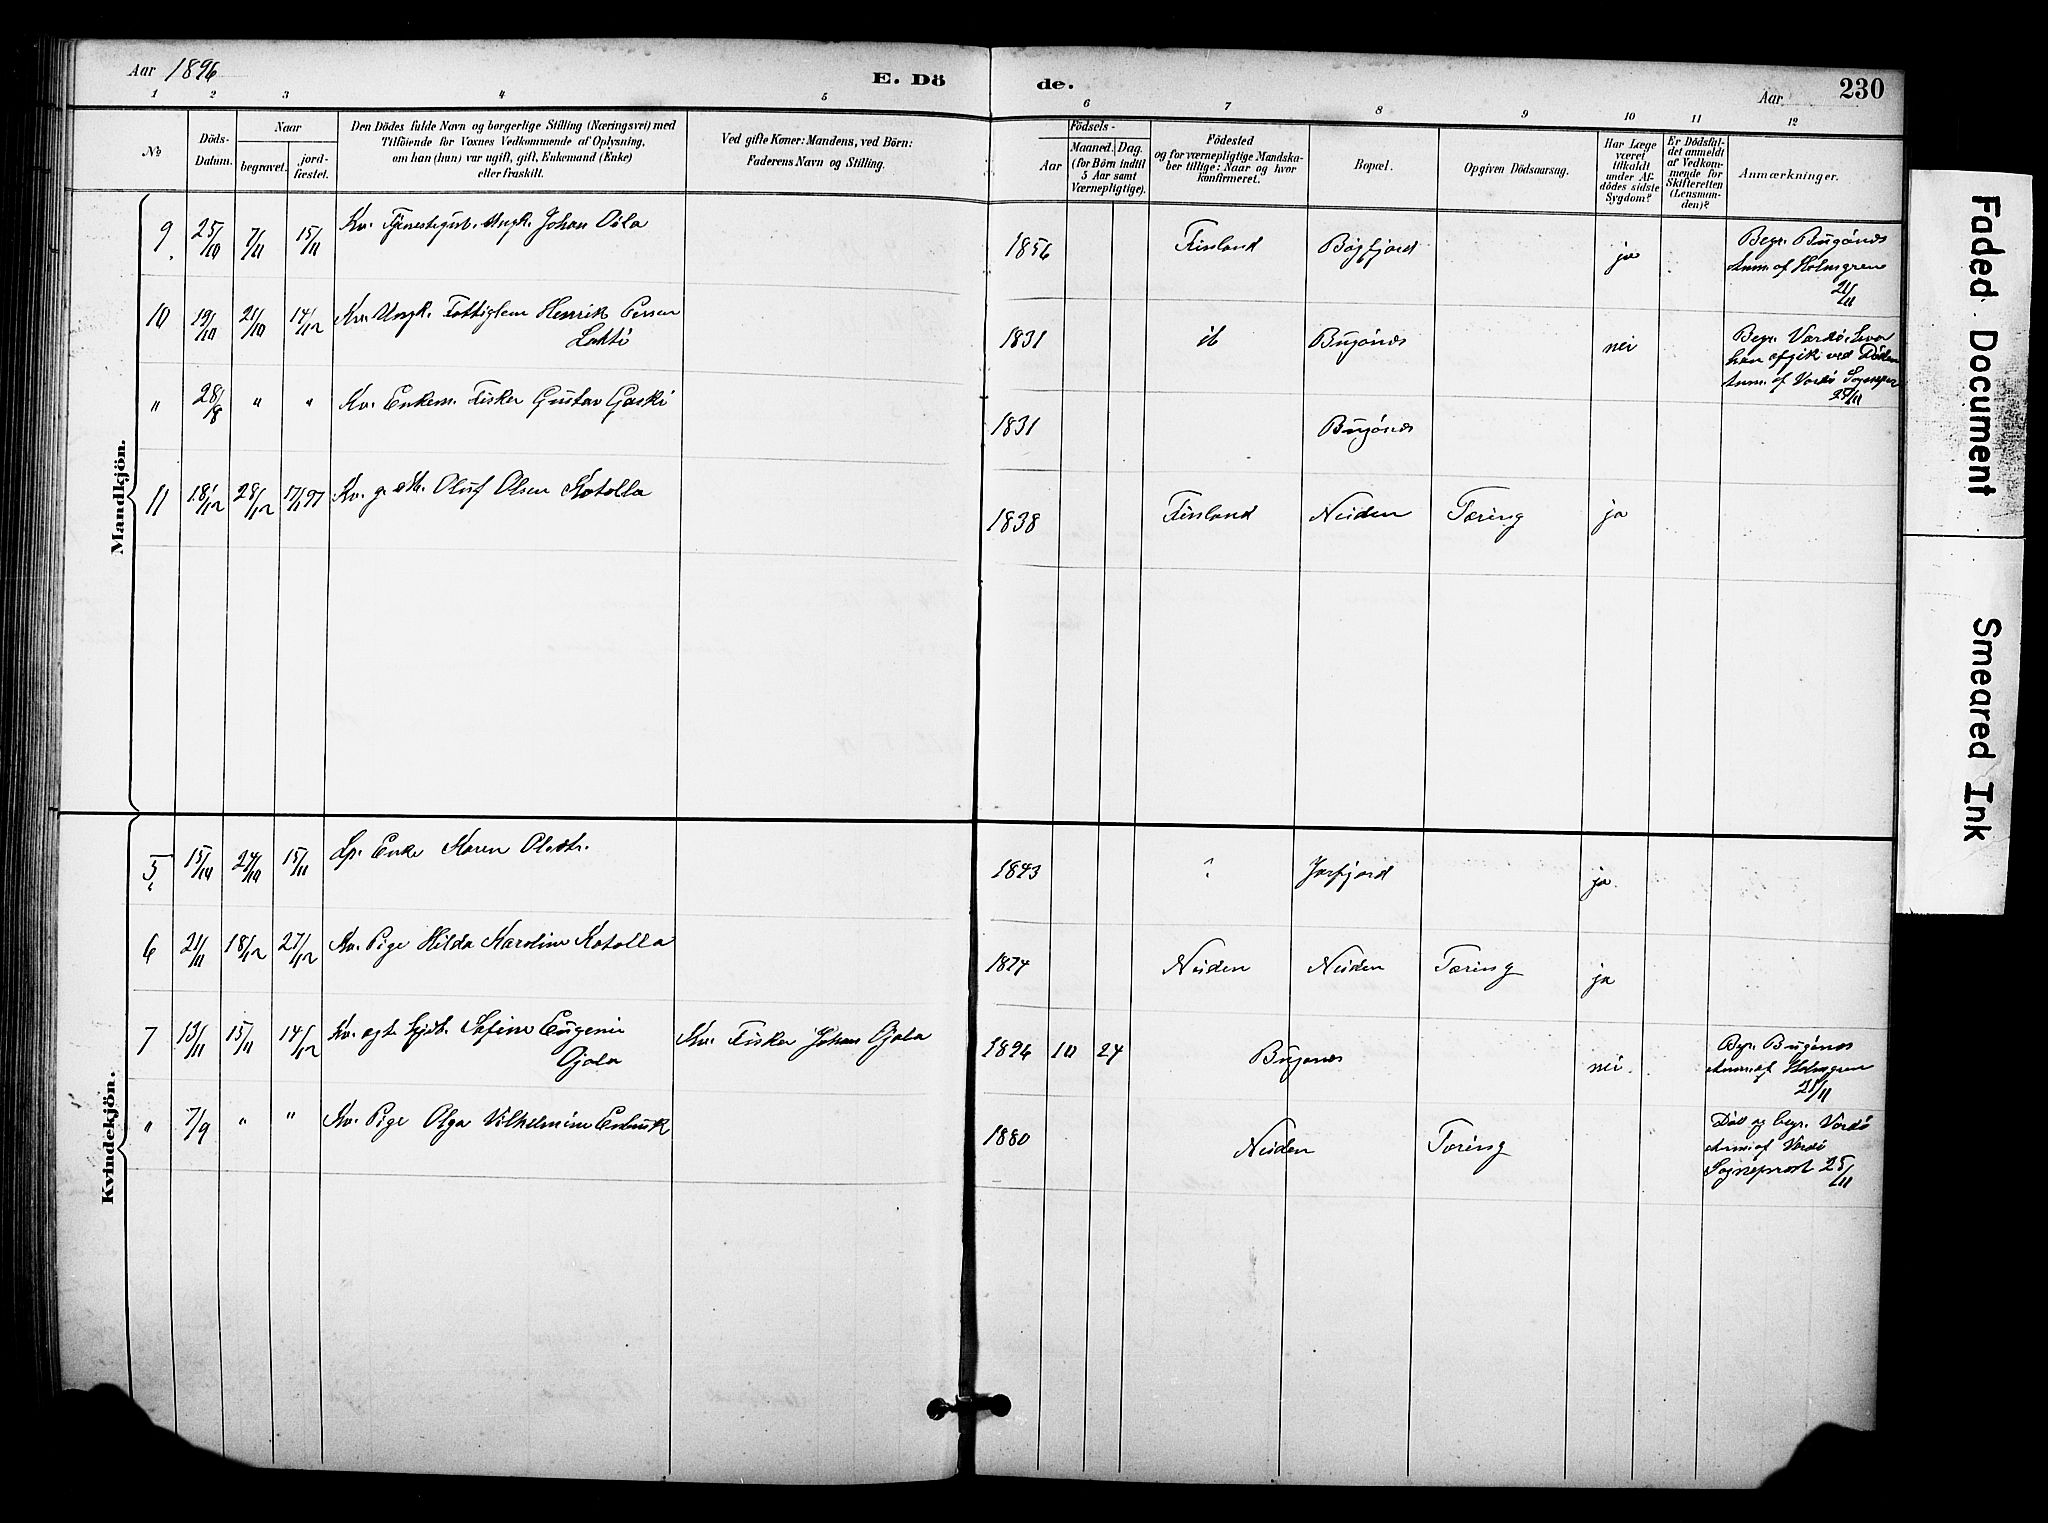 Aar 1896
E. Dö de.
Aar 230
1 2 3 4 5 6 7 8 9 10 11 12
No
Döds-Datum.
Naar
begravet.
jord-fæstet.
Den Dödes fulde Navn og borgerlige Stilling (Næringsvei) med
Tilföiende for Voxnes Vedkommende af Oplysning,
om han (hun) var ugift, gift, Enkemand (Enke)
eller fraskilt.
Ved gifte Koner: Mandens, ved Börn:
Faderens Navn og Stilling.
Födsels-
Aar
Maaned. Dag.
(for Börn indtil
5 Aar samt
Værnepligtige).
Födested
og for værnepligtige Mandska-
ber tillige: Naar og hvor
konfirmeret.
Bopæl.
Opgiven Dödsaarsag.
Har Læge
været
tilkaldt
under Af-
dödes sidste
Sygdom?
Er Dödsfal-
det anmeldt
af Vedkom-
mende for
Skifteretten
(Lensman-
den)?
Anmærkninger.
Mandkjön.
9. 25/10 7/11 15/11 Kv. Tjenestegut. Ungk. Johan Oila 1856 Finland Bøgfjord ja Begr. Bugönes
Anm. af Holmgren
21/11
10 19/10 21/10 14/12 Kv. Ungk. Fattiglem Henrik Persen
Lakti 1831 ib Bugönes nei Begr. Vardö, hvor
han afgik ved Döden
Anm. af Vardö Sognepr
25/11
" 28/8 " " Kv. Enkem. Fisker Gustav Gaski 1831 Bugönes
11 18/12 28/12 17/1 97 Kv. g. Oluf Olsen Kotolla 1838 Finland Neiden Tæring ja
Kvindekjön.
5. 15/10 24/10 15/11 Lp. Enke Karen Olsdtr. 1843 ? Jarfjord ja.
6 21/11 18/12 27/12 Kv. Pige Hilda Karoline Kotolla 1874 Neiden Neiden Tæring ja
7 13/11 15/11 14/12 Kv. egte Sofine Eugenie
Ojala Kv. Fisker Johan Ojala 1896 10 24 Bugönes nei. Begr. Bugönes
Anm. af Holmgren
21/11
" 7/9 " " Kv. Pige Olga Vilhelmine 1880 Neiden Tæring Död og begr. Vardö
Anm. af Vardö
Sogneprest 25/11
Faded Document
Smeared Ink